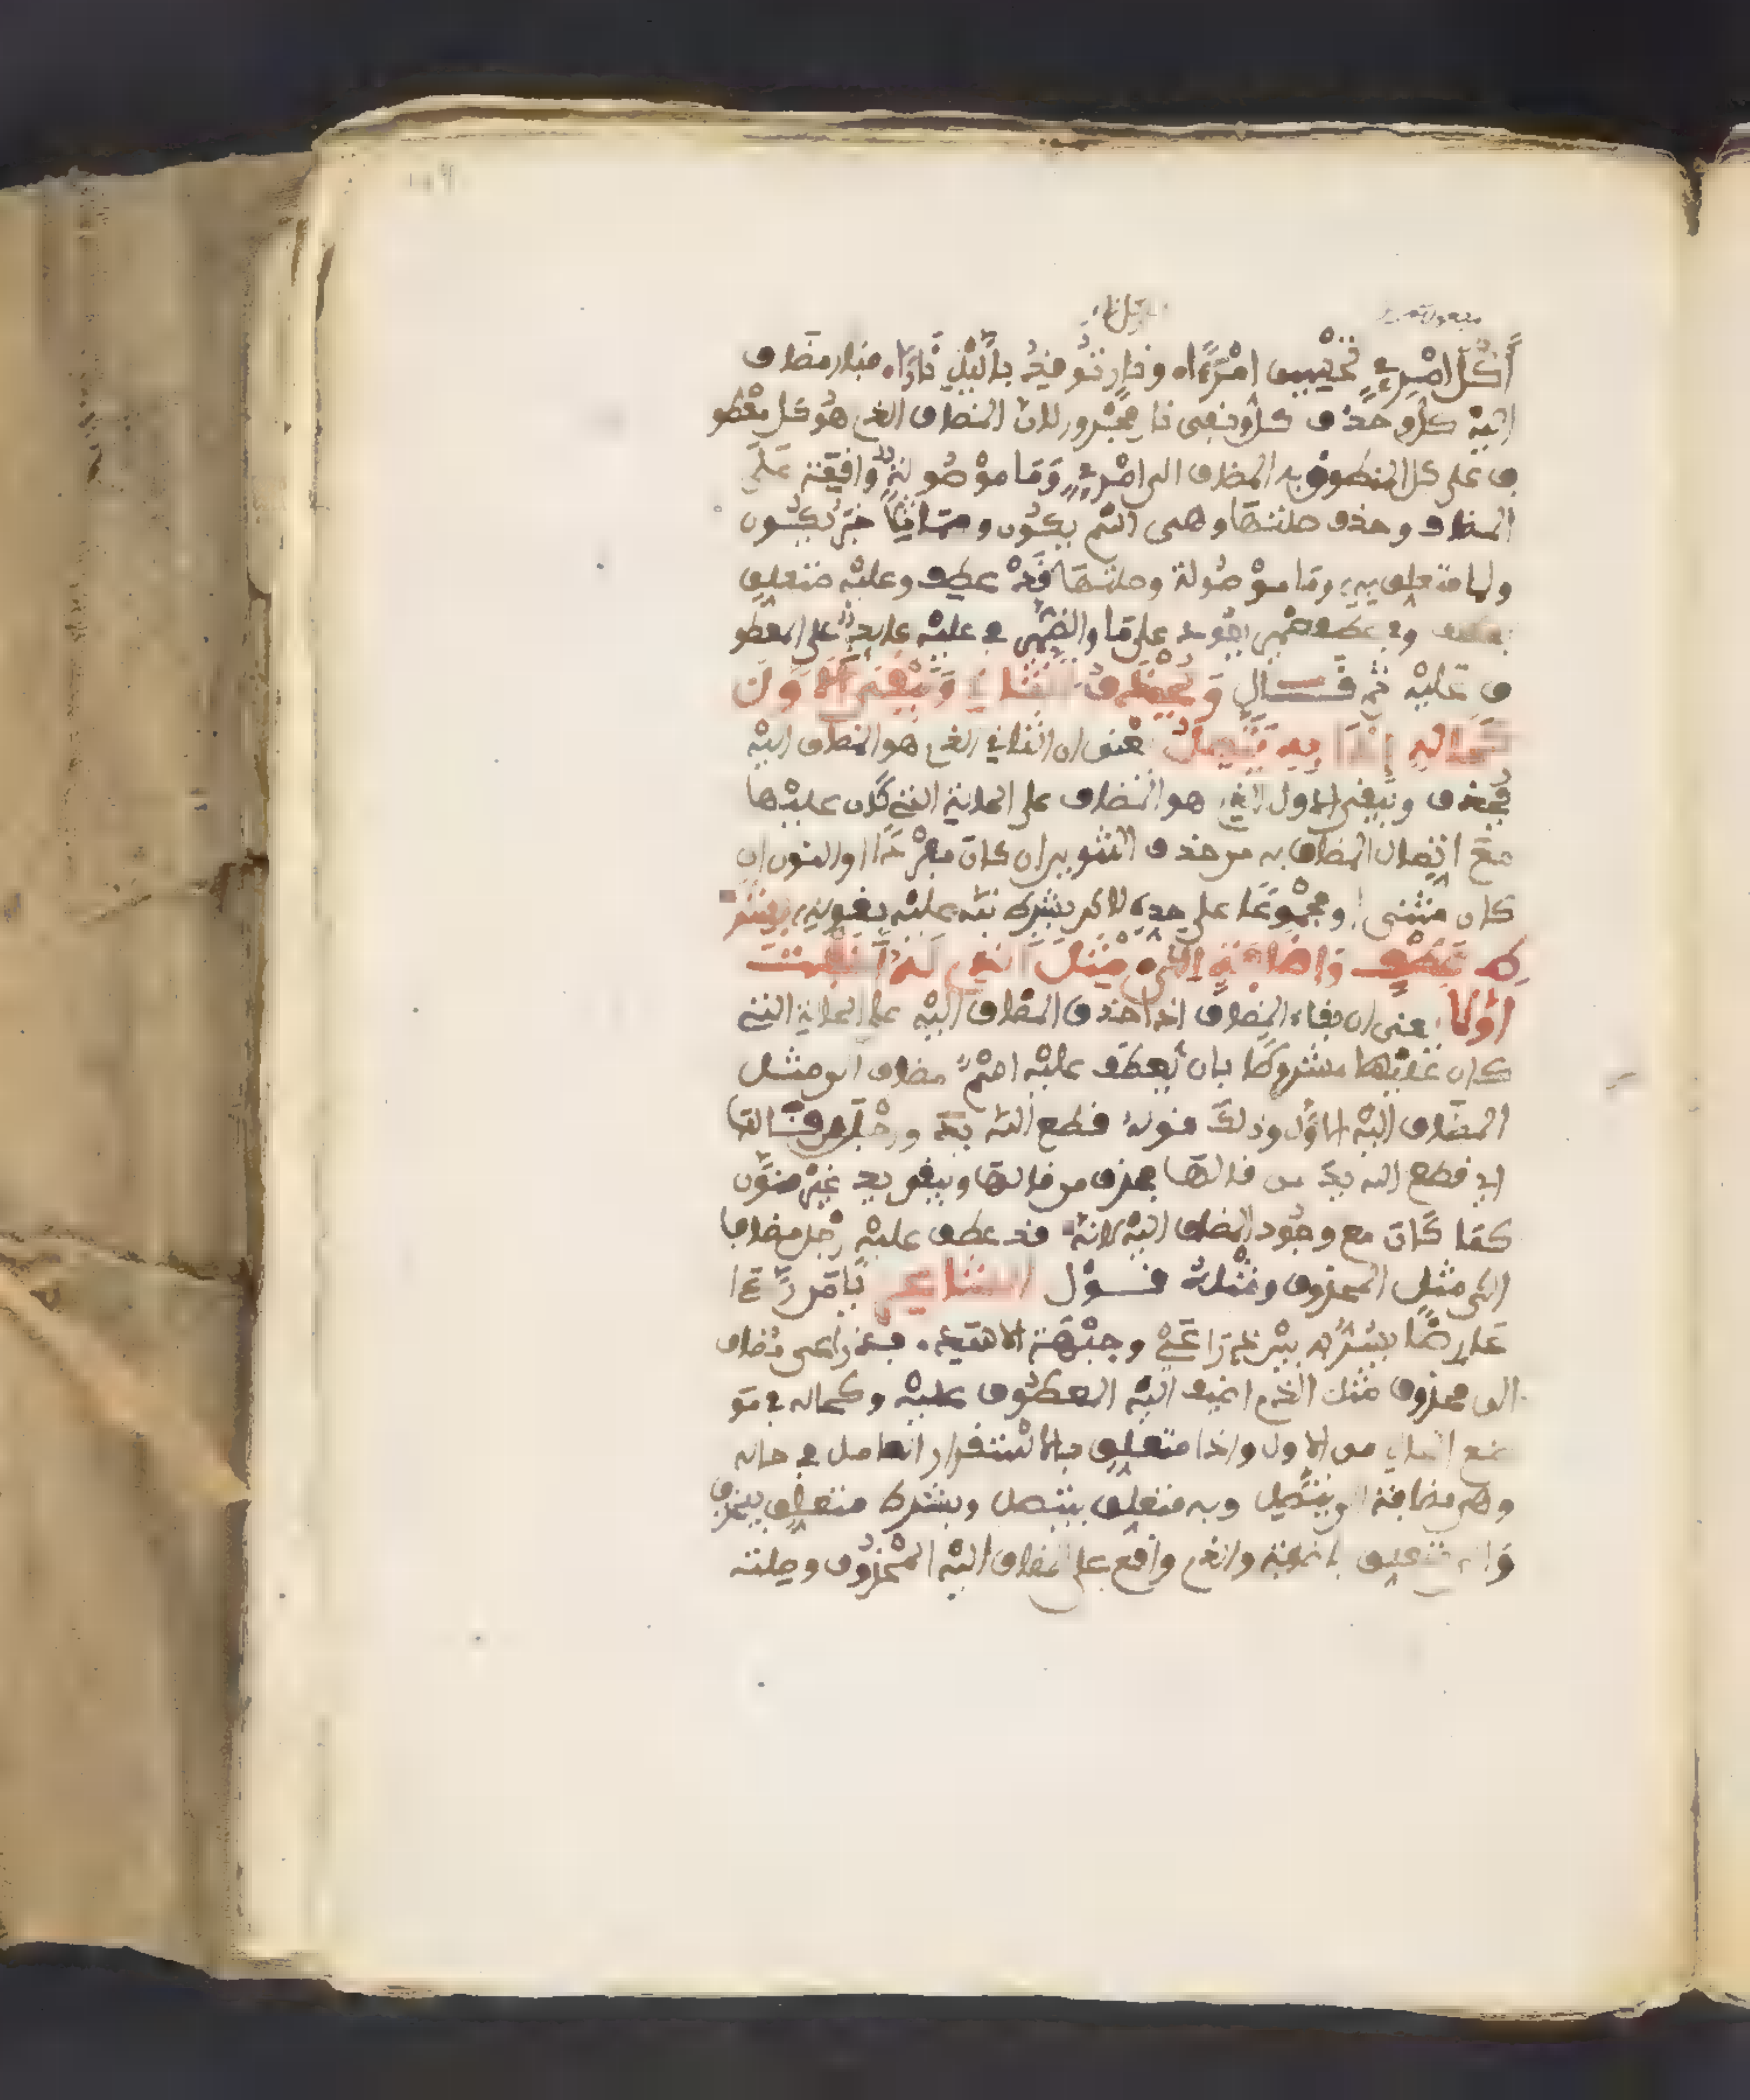 أكل امرئ تحسبين امرءا ونار توقد بالليل نارا فنار مضاف
اليه كل وحذف كل وبقي نار مجرور لان المضاف الذي هو كل معطو
ف على كل المنطوق به المضاف الى امرئ وما موصولة واقعة على
المضاف وحذف صلتها وهى اسم يكون ومماثلا خبر يكون
ولما متعلق به وما موصولة وصلتها قد عطف وعليه متعلق
بعطف وفي عطف ضمير يعود على ما والضمير في عليه عايد على المعطو
ف عليه ثم قال ويحذف الثاني ويبقى الاول
كحاله اذا به يتصل يعنى ان الثاني الذي هو المضاف اليه
يحذف ويبقى الاول الذي هو المضاف على الحالة التي كان عليها
مع اتصال المضاف به من حذف التنوين ان كان مفردا او النون ان
كان مثنى او مجموعا على حده لاكن بشرط نبه عليه بقوله بشر
ط عطف واضافة الى مثل الذي له اضفت
الاولا يعنى ان بقاء المضاف اذا حذف المضاف اليه على الحالة التي
كان عليها مشروط بان يعطف عليه اسم مضاف الى مثل
المضاف اليه الاول وذلك قوله قطع الله يد ورجل من قالها
اي قطع الله يد من قالها فحذف من قالها وبقي يد غير منون
كما كان مع وجود المضاف اليه لانه قد عطف عليه رجل مضافا
الى مثل المحذوف ومثله قول الشاعر يا من راى
عارضا يسر به بين ذراعي وجبهة الاسد فذراعي مضاف
الى محذوف مثل الذي اضيف اليه المعطوف عليه وكحاله في مو
ضع الحال من الاول واذا متعلق بالاستقرار العامل في حاله
وهى مضافة الى يتصل وبه متعلق بيتصل وبشرط متعلق بيحذف
والى متعلق باضافة والذي واقع على المضاف اليه المحذوف وصلته